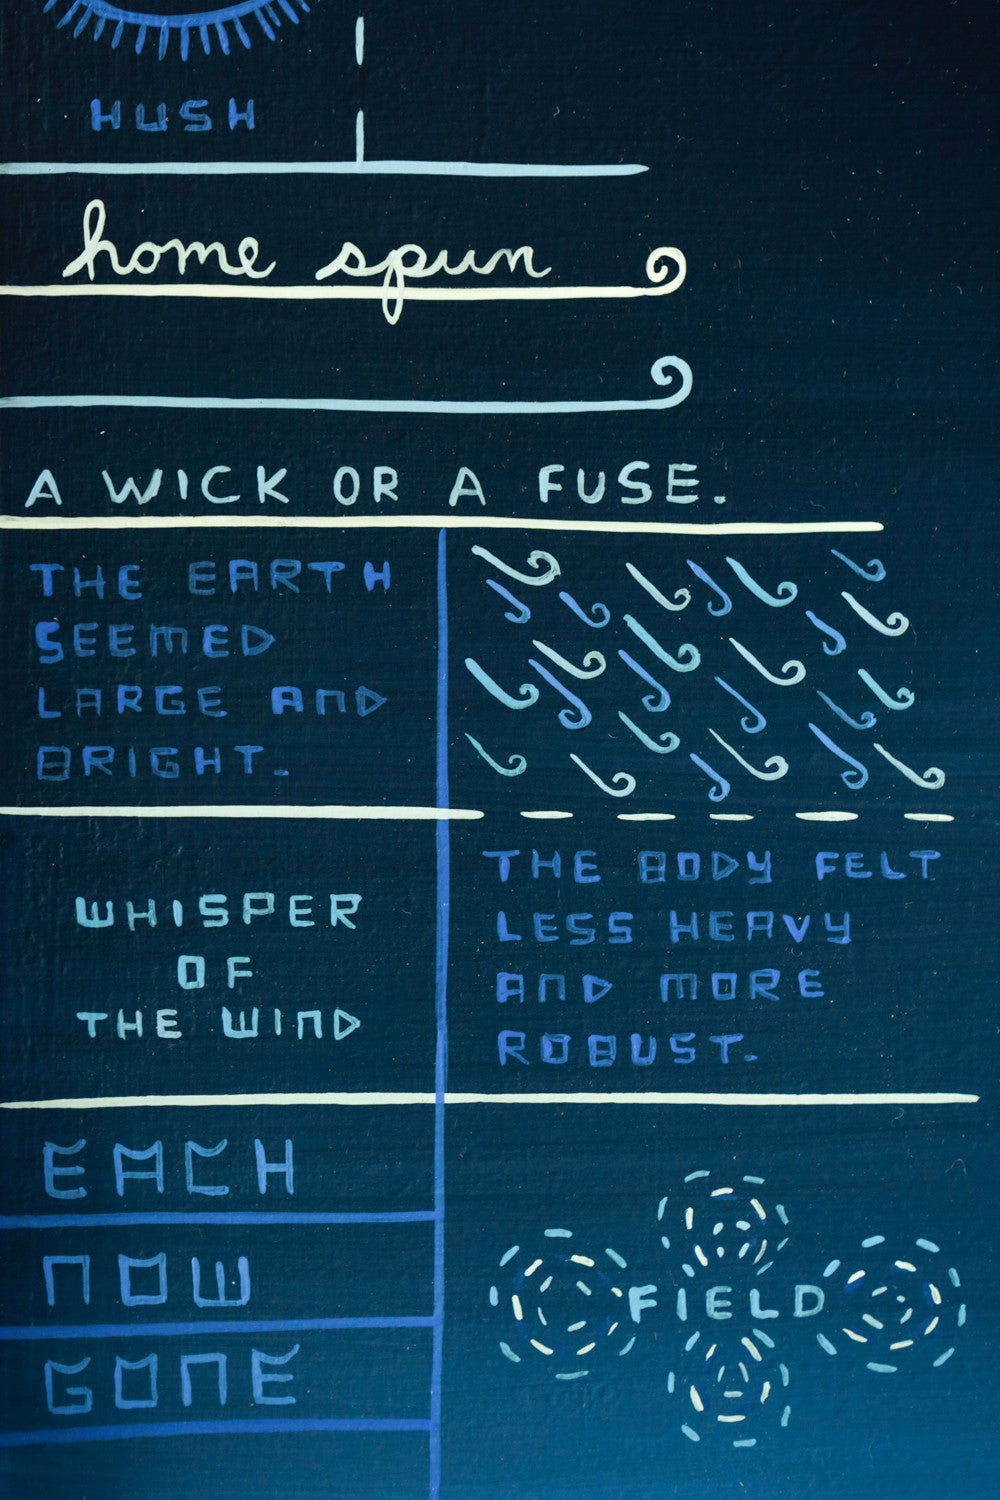 HUSH
home spun
A WICK OR A FUSE.
THE EARTH
SEEMED
LARGE AND
BRIGHT.
WHISPER
OF
THE WIND
THE BODY FELT
LESS HEAVY
AND MORE
ROBUST.
EACH
NOW
GONE
FIELD